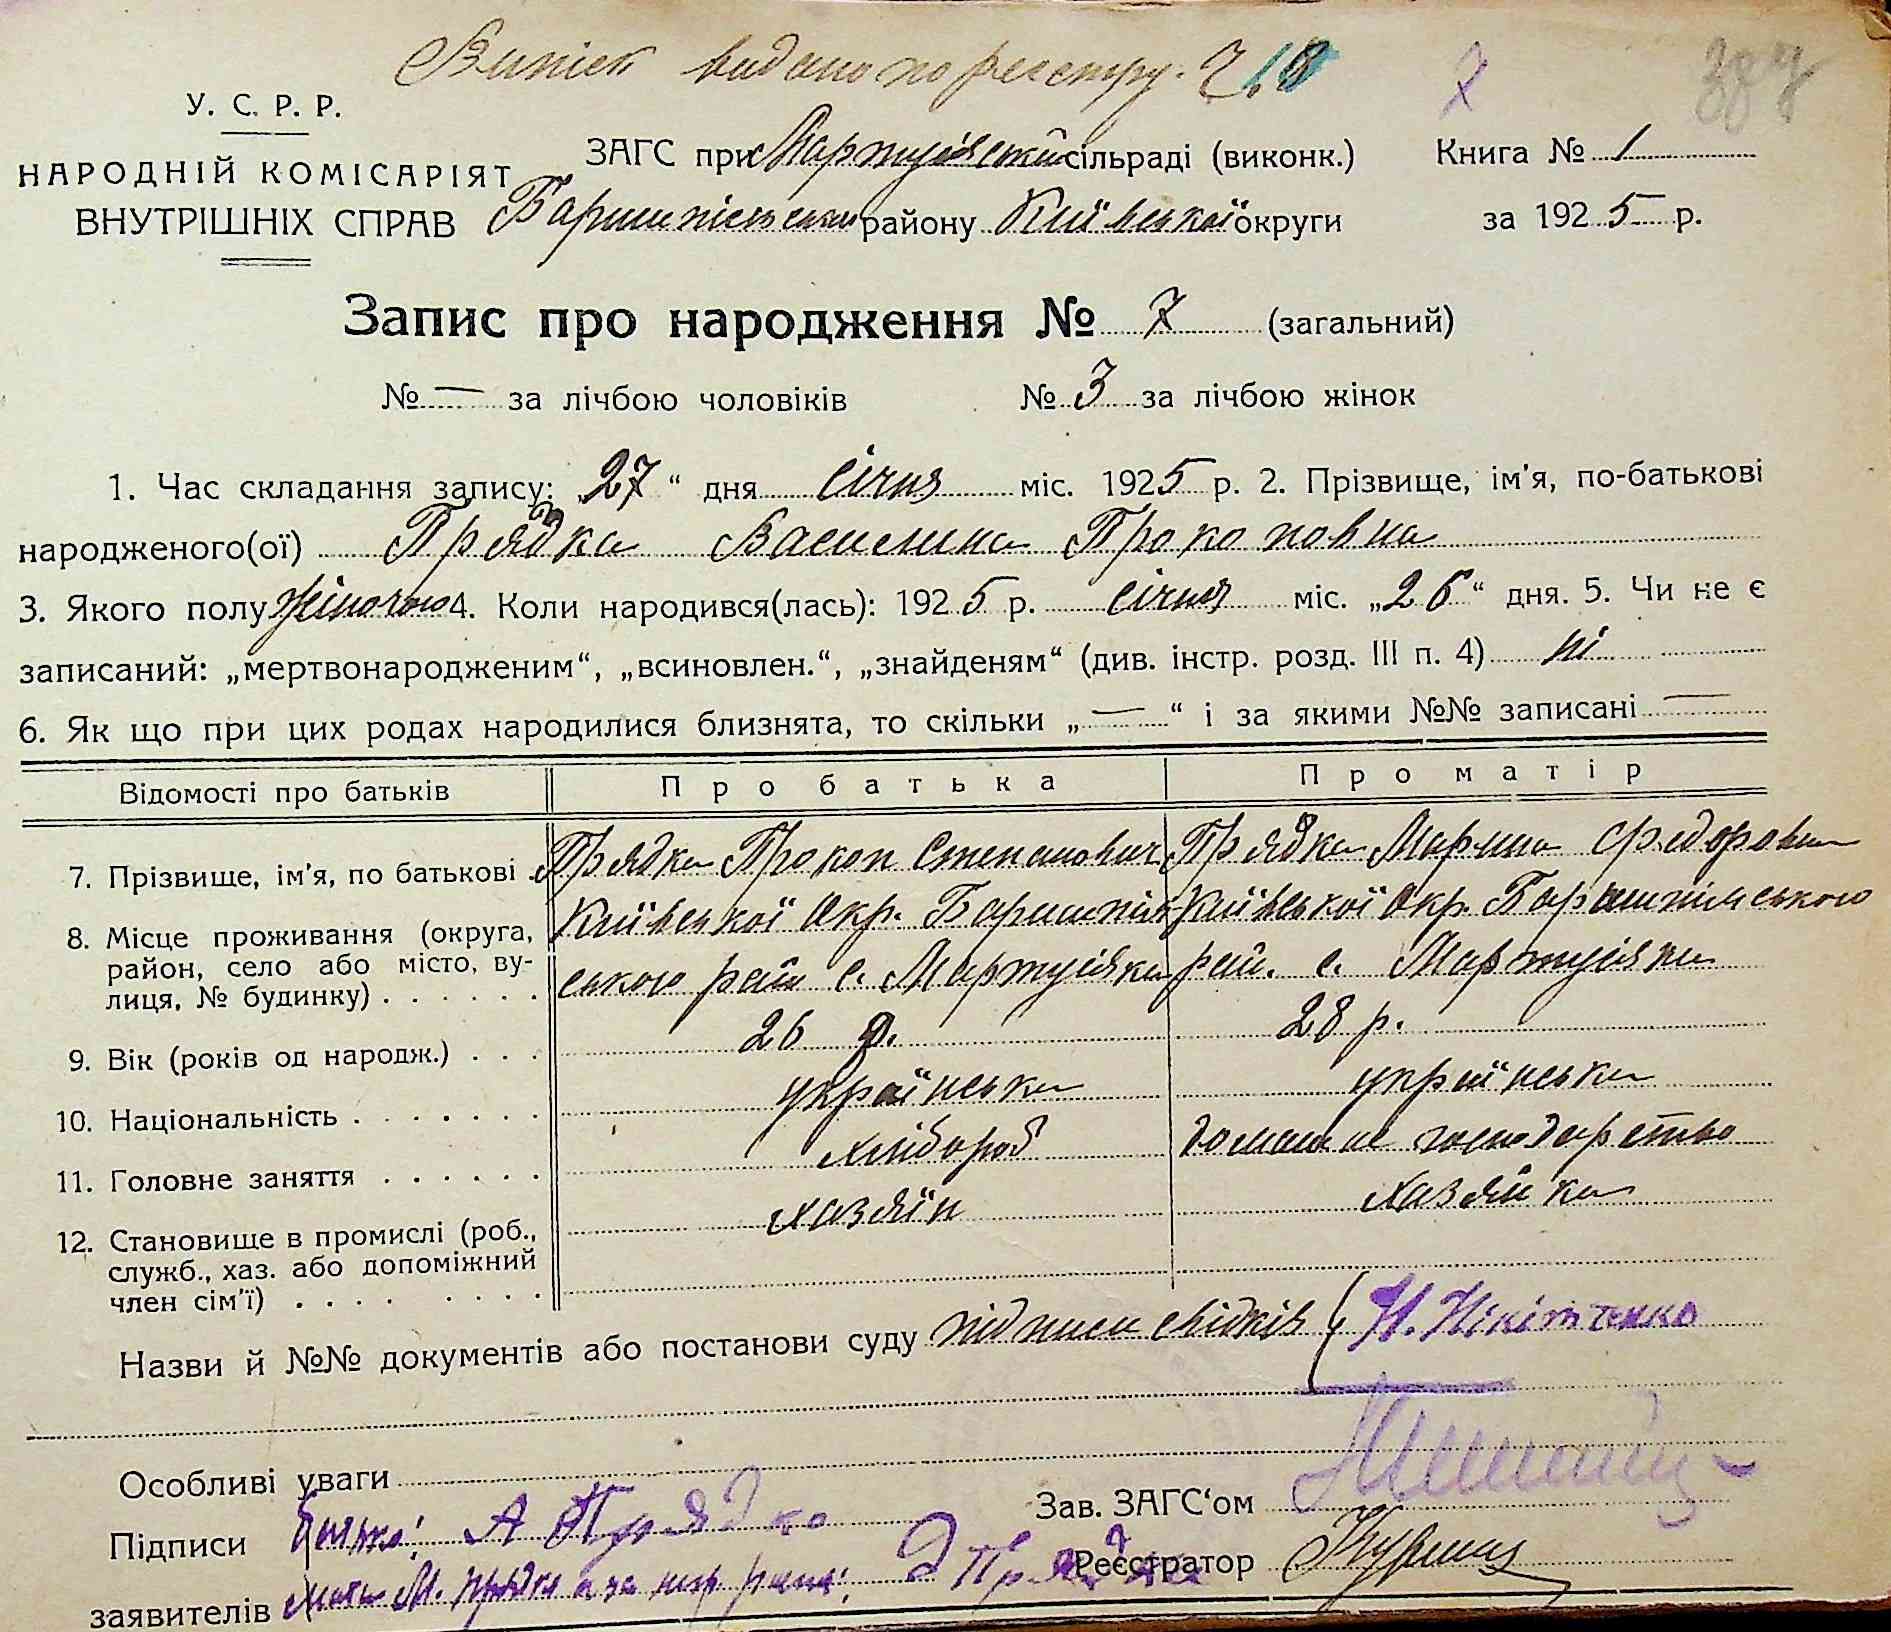 Випіск видано по реєстру. Ч. 18
7
У. С. Р. Р.
НАРОДНІЙ КОМІСАРІЯТ
ВНУТРІШНІХ СПРАВ
ЗАГС при Мартусівській сільраді (виконк.)
Баришпільського району Київської округи
Книга № 1
за 1925 р.
Запис про народження № 7 (загальний)
№ — за лічбою чоловіків № 3 за лічбою жінок
1. Час складання запису: 27 “ дня січня міс. 1925 р. 2. Прізвище, ім'я, по-батькові
народженого(ої) Прядка Василина Прокоповна
3. Якого полу жіночого 4. Коли народився(лась): 1925 р. січня міс. „26“ дня. 5. Чи не є
записаний: „мертвонародженим“, „всиновлен.“, „знайденям“ (див. інстр. розд. III п. 4) ні
6. Як що при цих родах народилися близнята, то скільки „—“ і за якими №№ записані —
Відомості про батьків Про батька Про матір
7. Прізвище, ім'я, по батькові . Прядка Прокоп Степанович Прядка Марина Федоровна
8. Місце проживання (округа, Київської Окр. Баришпіль- Київської Окр. Баришпільського
район, село або місто, ву- ського рай с. Мартусівка рай. с. Мартусівка
лиця, № будинку) . . . . . .
9. Вік (років од народж.) . . . 26 р. 28 р.
10. Національність . . . . . . . українська українська
11. Головне заняття . . . . . . хлібороб домашнє господарство
12. Становище в промислі (роб., хазяїн хазяйка
служб., хаз. або допоміжний
член сім'ї) . . . . . . . .
Назви й №№ документів або постанови суду підписи свідків Н. Нікітченко
Особливі уваги
Зав. ЗАГС'ом
Підписи батько: А Прядко
Реєстратор
заявителів мати М. Прядка а за неї